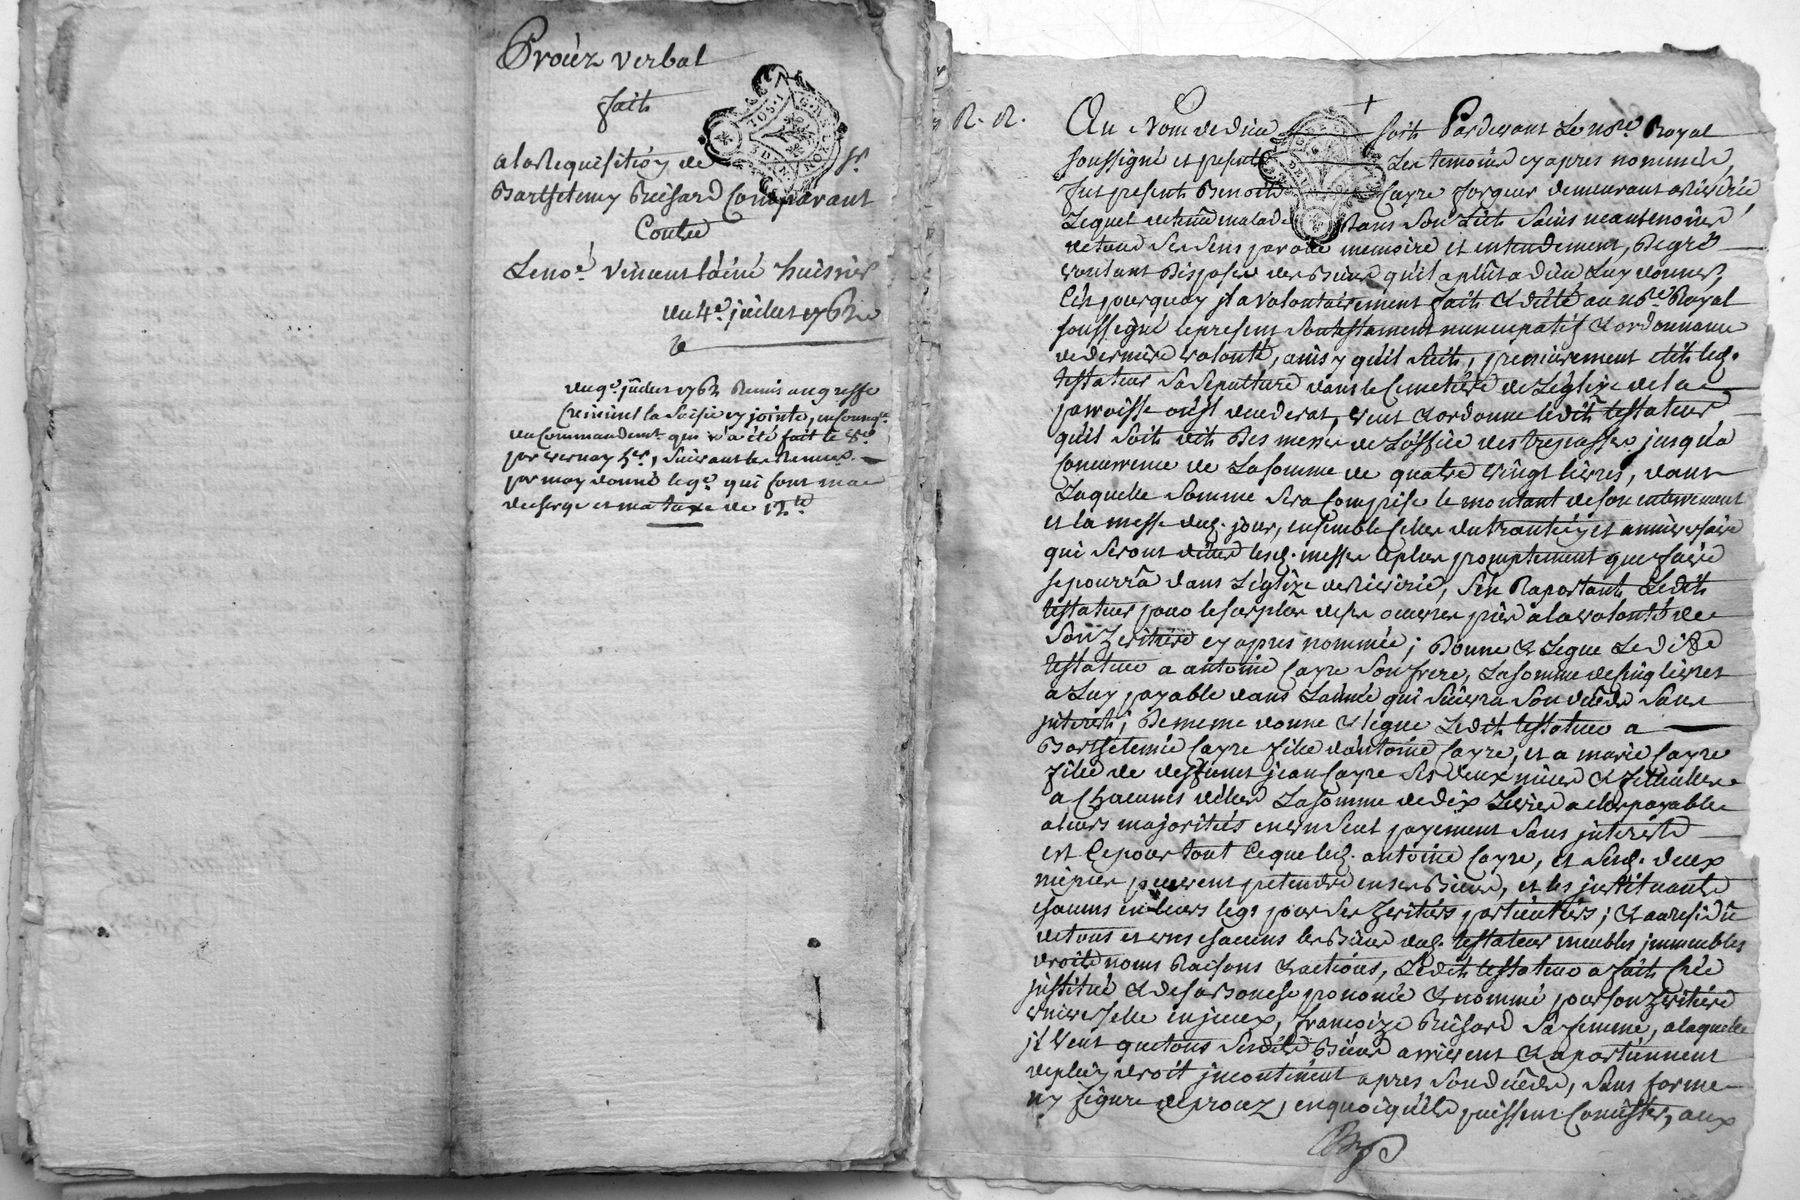 Prouéz verbal
fait
a la Requisition de Sr
Barthelemy Brichard Comparant
Contre
Le no.é vincent l'áiné huissier
du 4.e juillet 1762
du 9.e juillet 1762 Remis au greffe
Criminel la Saisie cy jointe, en conseq.ce
du Commandemt. qui m'a été fait le 8.e
par vernay h.er, Suivant le
par moy donné le 9.e qui font ma
descharge et ma taxe de 12 ll
R. R.
Au Nom de dieu soit Pardevant Le no.re Royal
soussigné et presents Les temoins cy apres nommés,
fut present Benoit Cayre forgeur demeurant a Rivirie
Lequel detenu malade dans Son Lit Sains neantmoins
de tous Ses Sens parole memoire et entendement, De gré
voulant Disposer des Biens qu'il a plût a Dieu Luy donner,
C'est pourquoy il a volontairement fait & dicté au no.re Royal
soussigné le present Son testament nuncupatif & ordonnance
de derniere volonté, ainsy qu'il Suit, premierement elit led.
testateur Sa Sepulture dans le Cemetiére de L'églize de la
parroisse où il decederat, veut & ordonne ledit testateur
qu'il Soit dit Des messes de L'office des trepassés jusqu'a
Concurrence de La Somme de quatre vingt livres, dans
Laquelle Somme Sera Comprise le montant de son enterrement
et la messe dud. jour, ensemble Celles du trantein et anniversaire
qui Seront dittes lesd. messes le plus promptement que faire
se pourrà dans L'églize de Riviriè, S'en Raportant Ledit
testateur pour le surplus de ses oeuvres pies a la volonté de
Son héritiére cy apres nommée; Donne & Legue Ledit
testateur a antoine Cayre Son frere, La Somme de Cinq livres
a Luy payable dans L'année qui Suivra Son decés Sans
interets; De meme donne & legue Ledit testateur a
Barthelemie Cayre fille d'antoine Cayre, et a marie Cayre
fille de deffunct jean Cayre Ses deux nieces & filleulles
a Chacunes d'elles La Somme de dix Livres a elles payables
a leurs majorités en un Seul payement Sans interets
est Ce pour tout Ce que led. antoine Cayre, et Sesd. deux
niepces peuvent pretendre en ses Biens, et les instituants
chacuns en leurs legs pour Ses héritiers particuliers; & au residû
de tous et uns chacuns les Biens dud. testateur meubles immeubles
droits noms Raisons & actions, Ledit testateur a fait Créé
institué & de sa Bouche prononcé & nommé pour son héritiére
universelle Françoize Brichard Sa femme, a laquelle
il veut que tous Sesdits Biens arrivent & apartiennent
de plein droit incontinent apres Son decés, Sans forme
ny figure de proces, en quoi qu'ils puissent Consister, aux